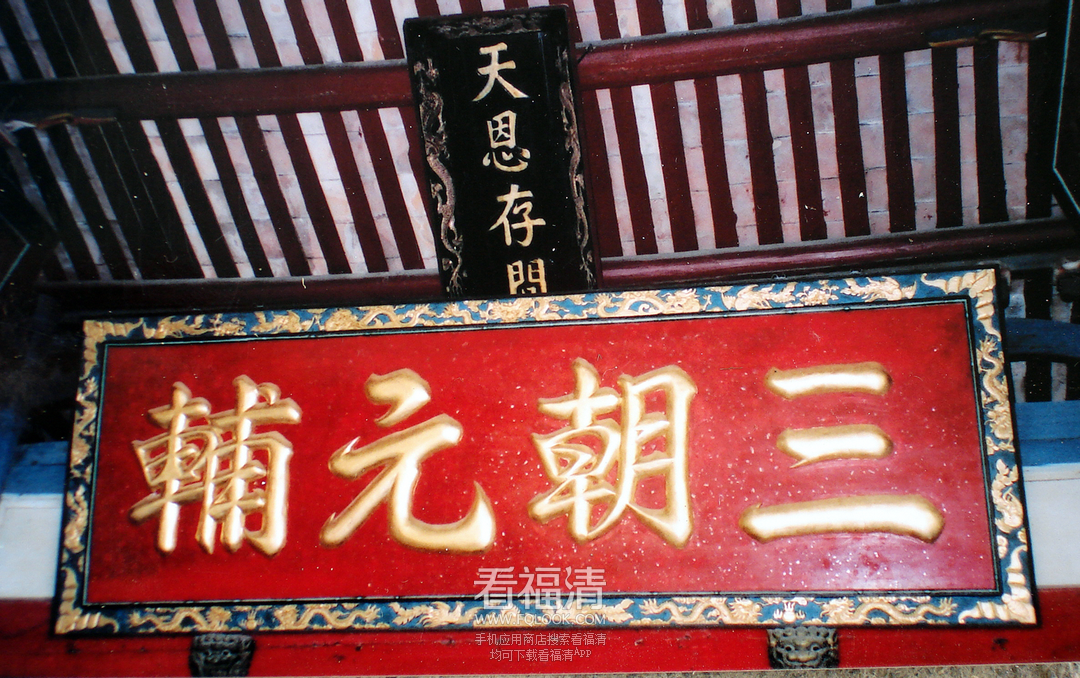 天恩存問
三朝元輔
看福清
WWW.FQLOOK.COM
手机应用商店搜索看福清
均可下载看福清App